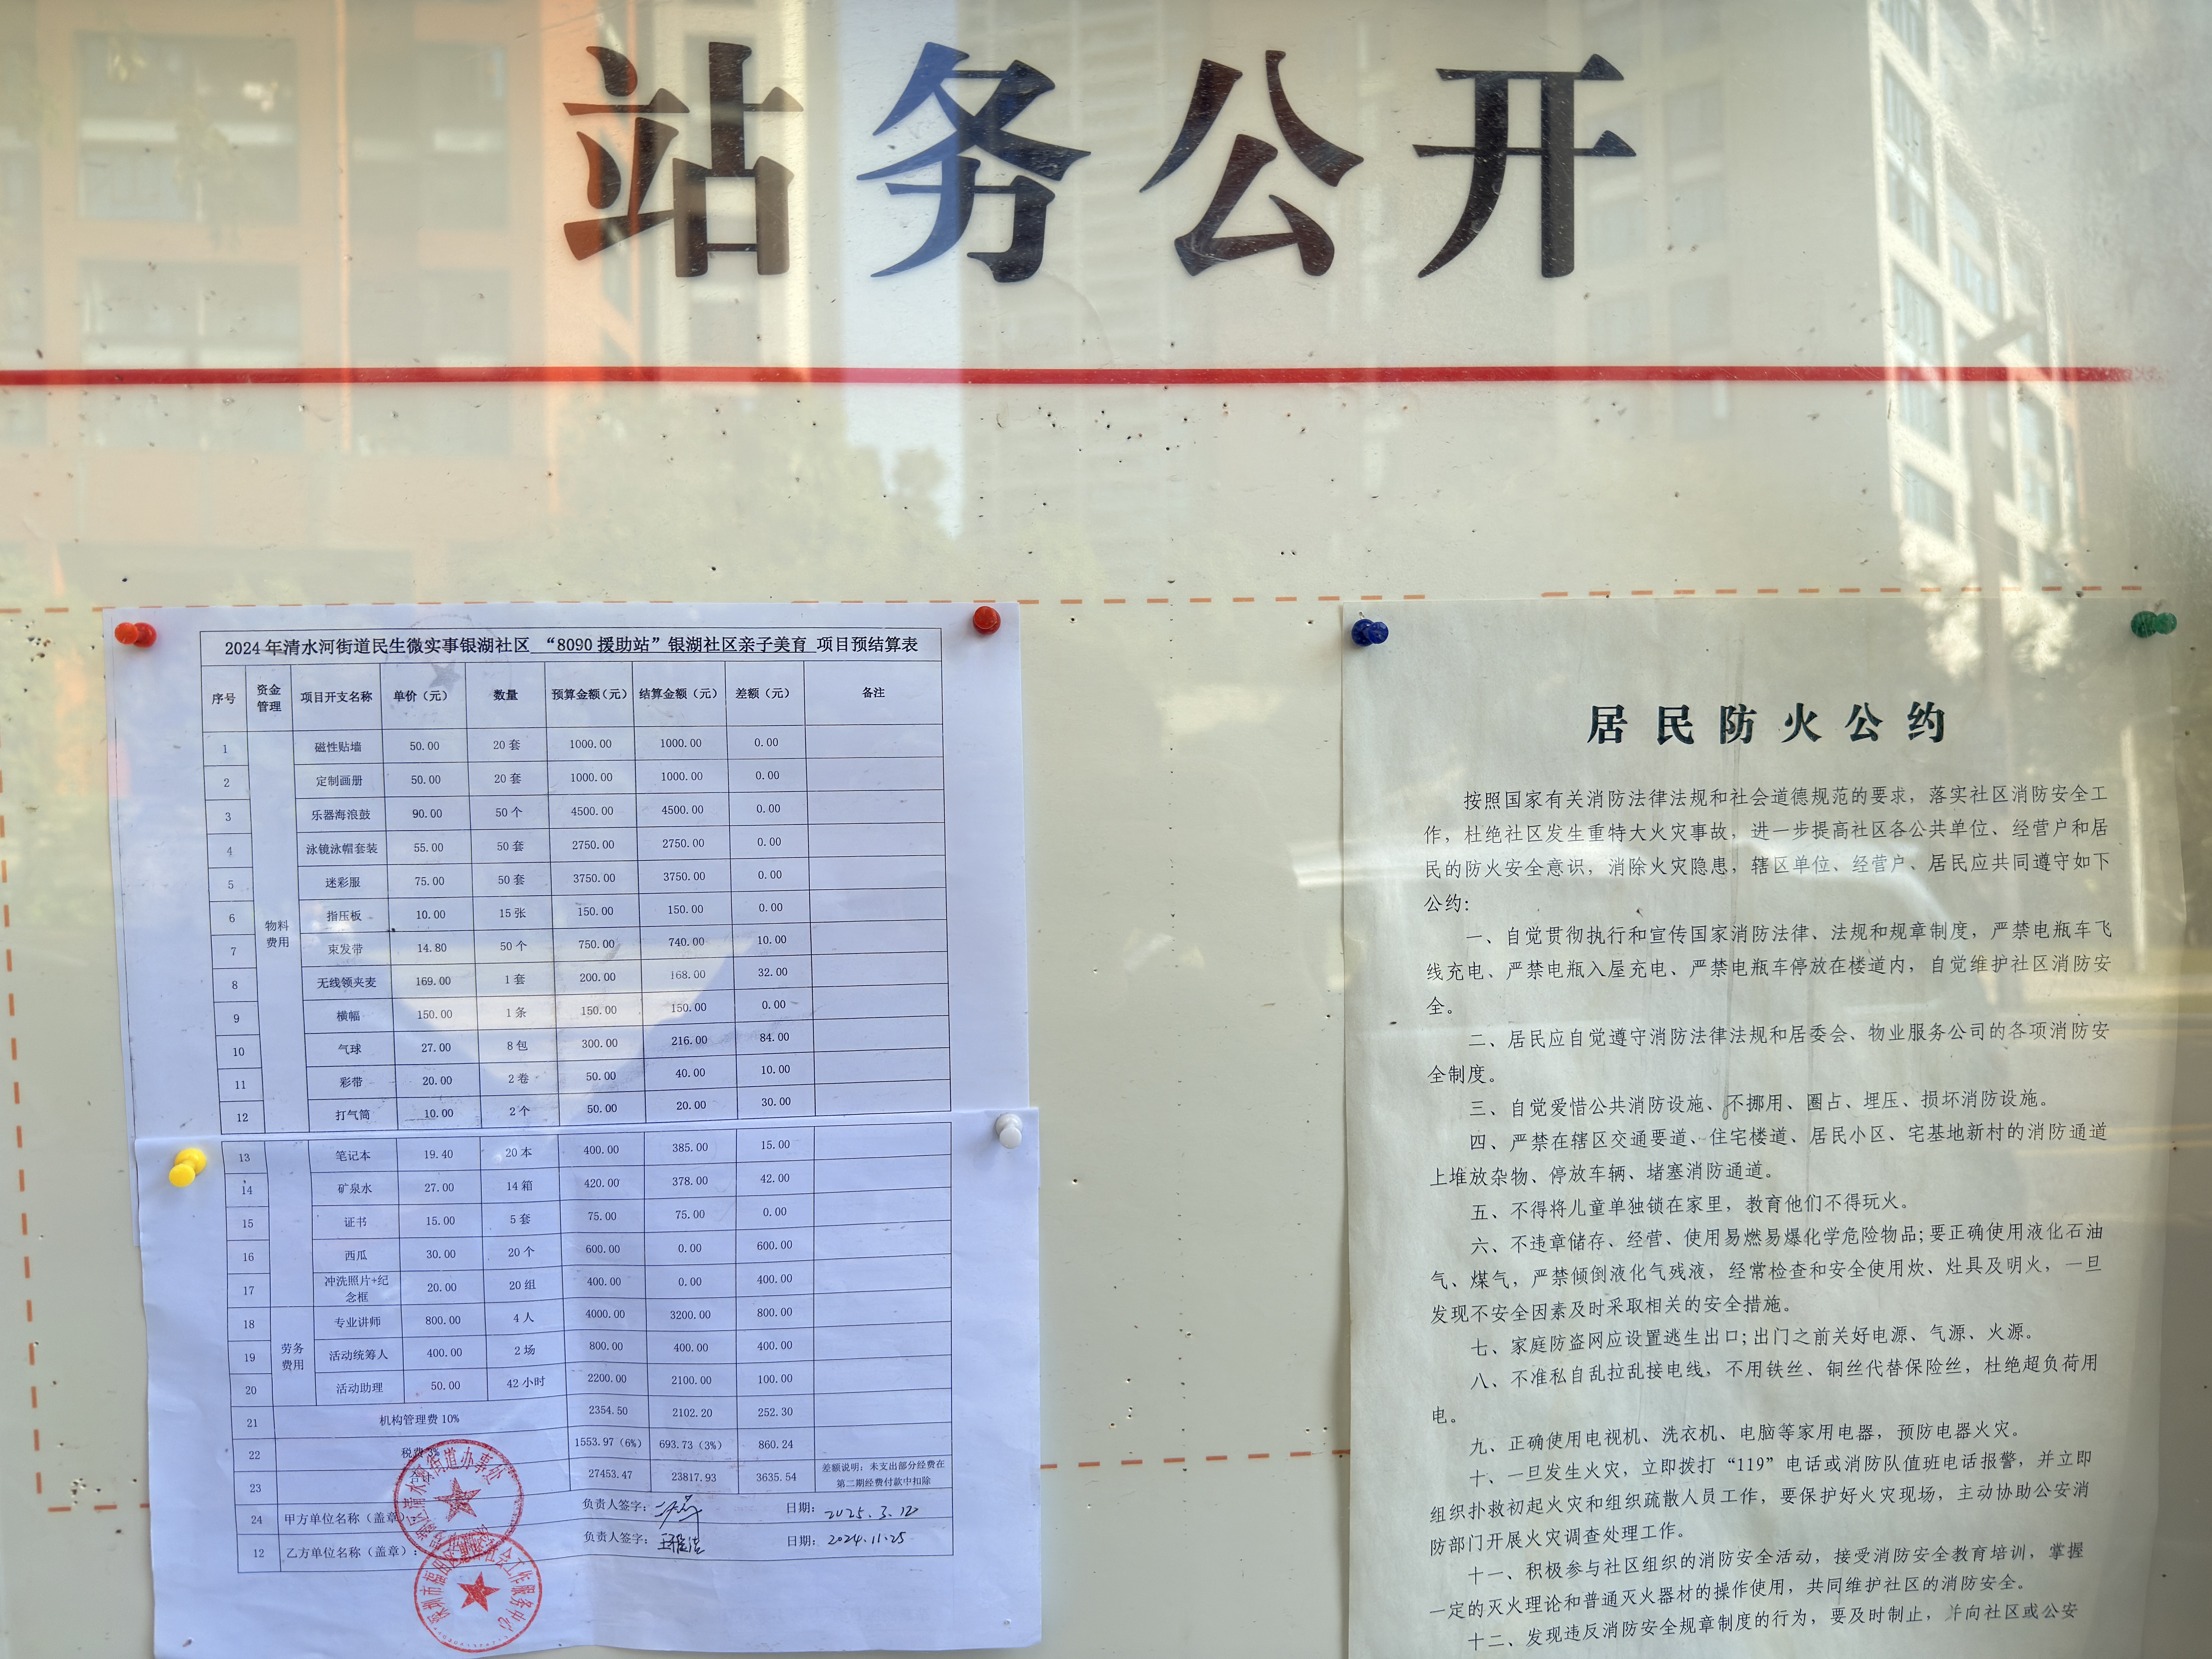 站务公开
2024年清水河街道民生微实事银湖社区 “8090援助站”银湖社区亲子美育 项目预结算表
序号 资金管理 项目开支名称 单价（元） 数量 预算金额（元） 结算金额（元） 差额（元） 备注
物料费用
1 磁性贴墙 50.00 20套 1000.00 1000.00 0.00
2 定制画册 50.00 20套 1000.00 1000.00 0.00
3 乐器海浪鼓 90.00 50个 4500.00 4500.00 0.00
4 泳镜泳帽套装 55.00 50套 2750.00 2750.00 0.00
5 迷彩服 75.00 50套 3750.00 3750.00 0.00
6 指压板 10.00 15张 150.00 150.00 0.00
7 束发带 14.80 50个 750.00 740.00 10.00
8 无线领夹麦 169.00 1套 200.00 168.00 32.00
9 横幅 150.00 1条 150.00 150.00 0.00
10 气球 27.00 8包 300.00 216.00 84.00
11 彩带 20.00 2卷 50.00 40.00 10.00
12 打气筒 10.00 2个 50.00 20.00 30.00
13 笔记本 19.40 20本 400.00 385.00 15.00
14 矿泉水 27.00 14箱 420.00 378.00 42.00
15 证书 15.00 5套 75.00 75.00 0.00
16 西瓜 30.00 20个 600.00 0.00 600.00
17 冲洗照片+纪念框 20.00 20组 400.00 0.00 400.00
劳务费用
18 专业讲师 800.00 4人 4000.00 3200.00 800.00
19 活动统筹人 400.00 2场 800.00 400.00 400.00
20 活动助理 50.00 42小时 2200.00 2100.00 100.00
21 机构管理费10% 2354.50 2102.20 252.30
22 税费 1553.97（6%） 693.73（3%） 860.24
23 27453.47 23817.93 3635.54 差额说明：未支出部分经费在第二期经费付款中扣除
24 甲方单位名称（盖章） 负责人签字： 日期： 2025.3.12
12 乙方单位名称（盖章）： 负责人签字： 日期： 2024.11.25
居民防火公约
按照国家有关消防法律法规和社会道德规范的要求，落实社区消防安全工
作，杜绝社区发生重特大火灾事故，进一步提高社区各公共单位、经营户和居
民的防火安全意识，消除火灾隐患，辖区单位、经营户、居民应共同遵守如下
公约：
一、自觉贯彻执行和宣传国家消防法律、法规和规章制度，严禁电瓶车飞
线充电、严禁电瓶入屋充电、严禁电瓶车停放在楼道内，自觉维护社区消防安
全。
二、居民应自觉遵守消防法律法规和居委会、物业服务公司的各项消防安
全制度。
三、自觉爱惜公共消防设施、不挪用、圈占、埋压、损坏消防设施。
四、严禁在辖区交通要道、住宅楼道、居民小区、宅基地新村的消防通道
上堆放杂物、停放车辆、堵塞消防通道。
五、不得将儿童单独锁在家里，教育他们不得玩火。
六、不违章储存、经营、使用易燃易爆化学危险物品；要正确使用液化石油
气、煤气，严禁倾倒液化气残液，经常检查和安全使用炊、灶具及明火，一旦
发现不安全因素及时采取相关的安全措施。
七、家庭防盗网应设置逃生出口；出门之前关好电源、气源、火源。
八、不准私自乱拉乱接电线，不用铁丝、铜丝代替保险丝，杜绝超负荷用
电。
九、正确使用电视机、洗衣机、电脑等家用电器，预防电器火灾。
十、一旦发生火灾，立即拨打“119”电话或消防队值班电话报警，并立即
组织扑救初起火灾和组织疏散人员工作，要保护好火灾现场，主动协助公安消
防部门开展火灾调查处理工作。
十一、积极参与社区组织的消防安全活动，接受消防安全教育培训，掌握
一定的灭火理论和普通灭火器材的操作使用，共同维护社区的消防安全。
十二、发现违反消防安全规章制度的行为，要及时制止，并向社区或公安